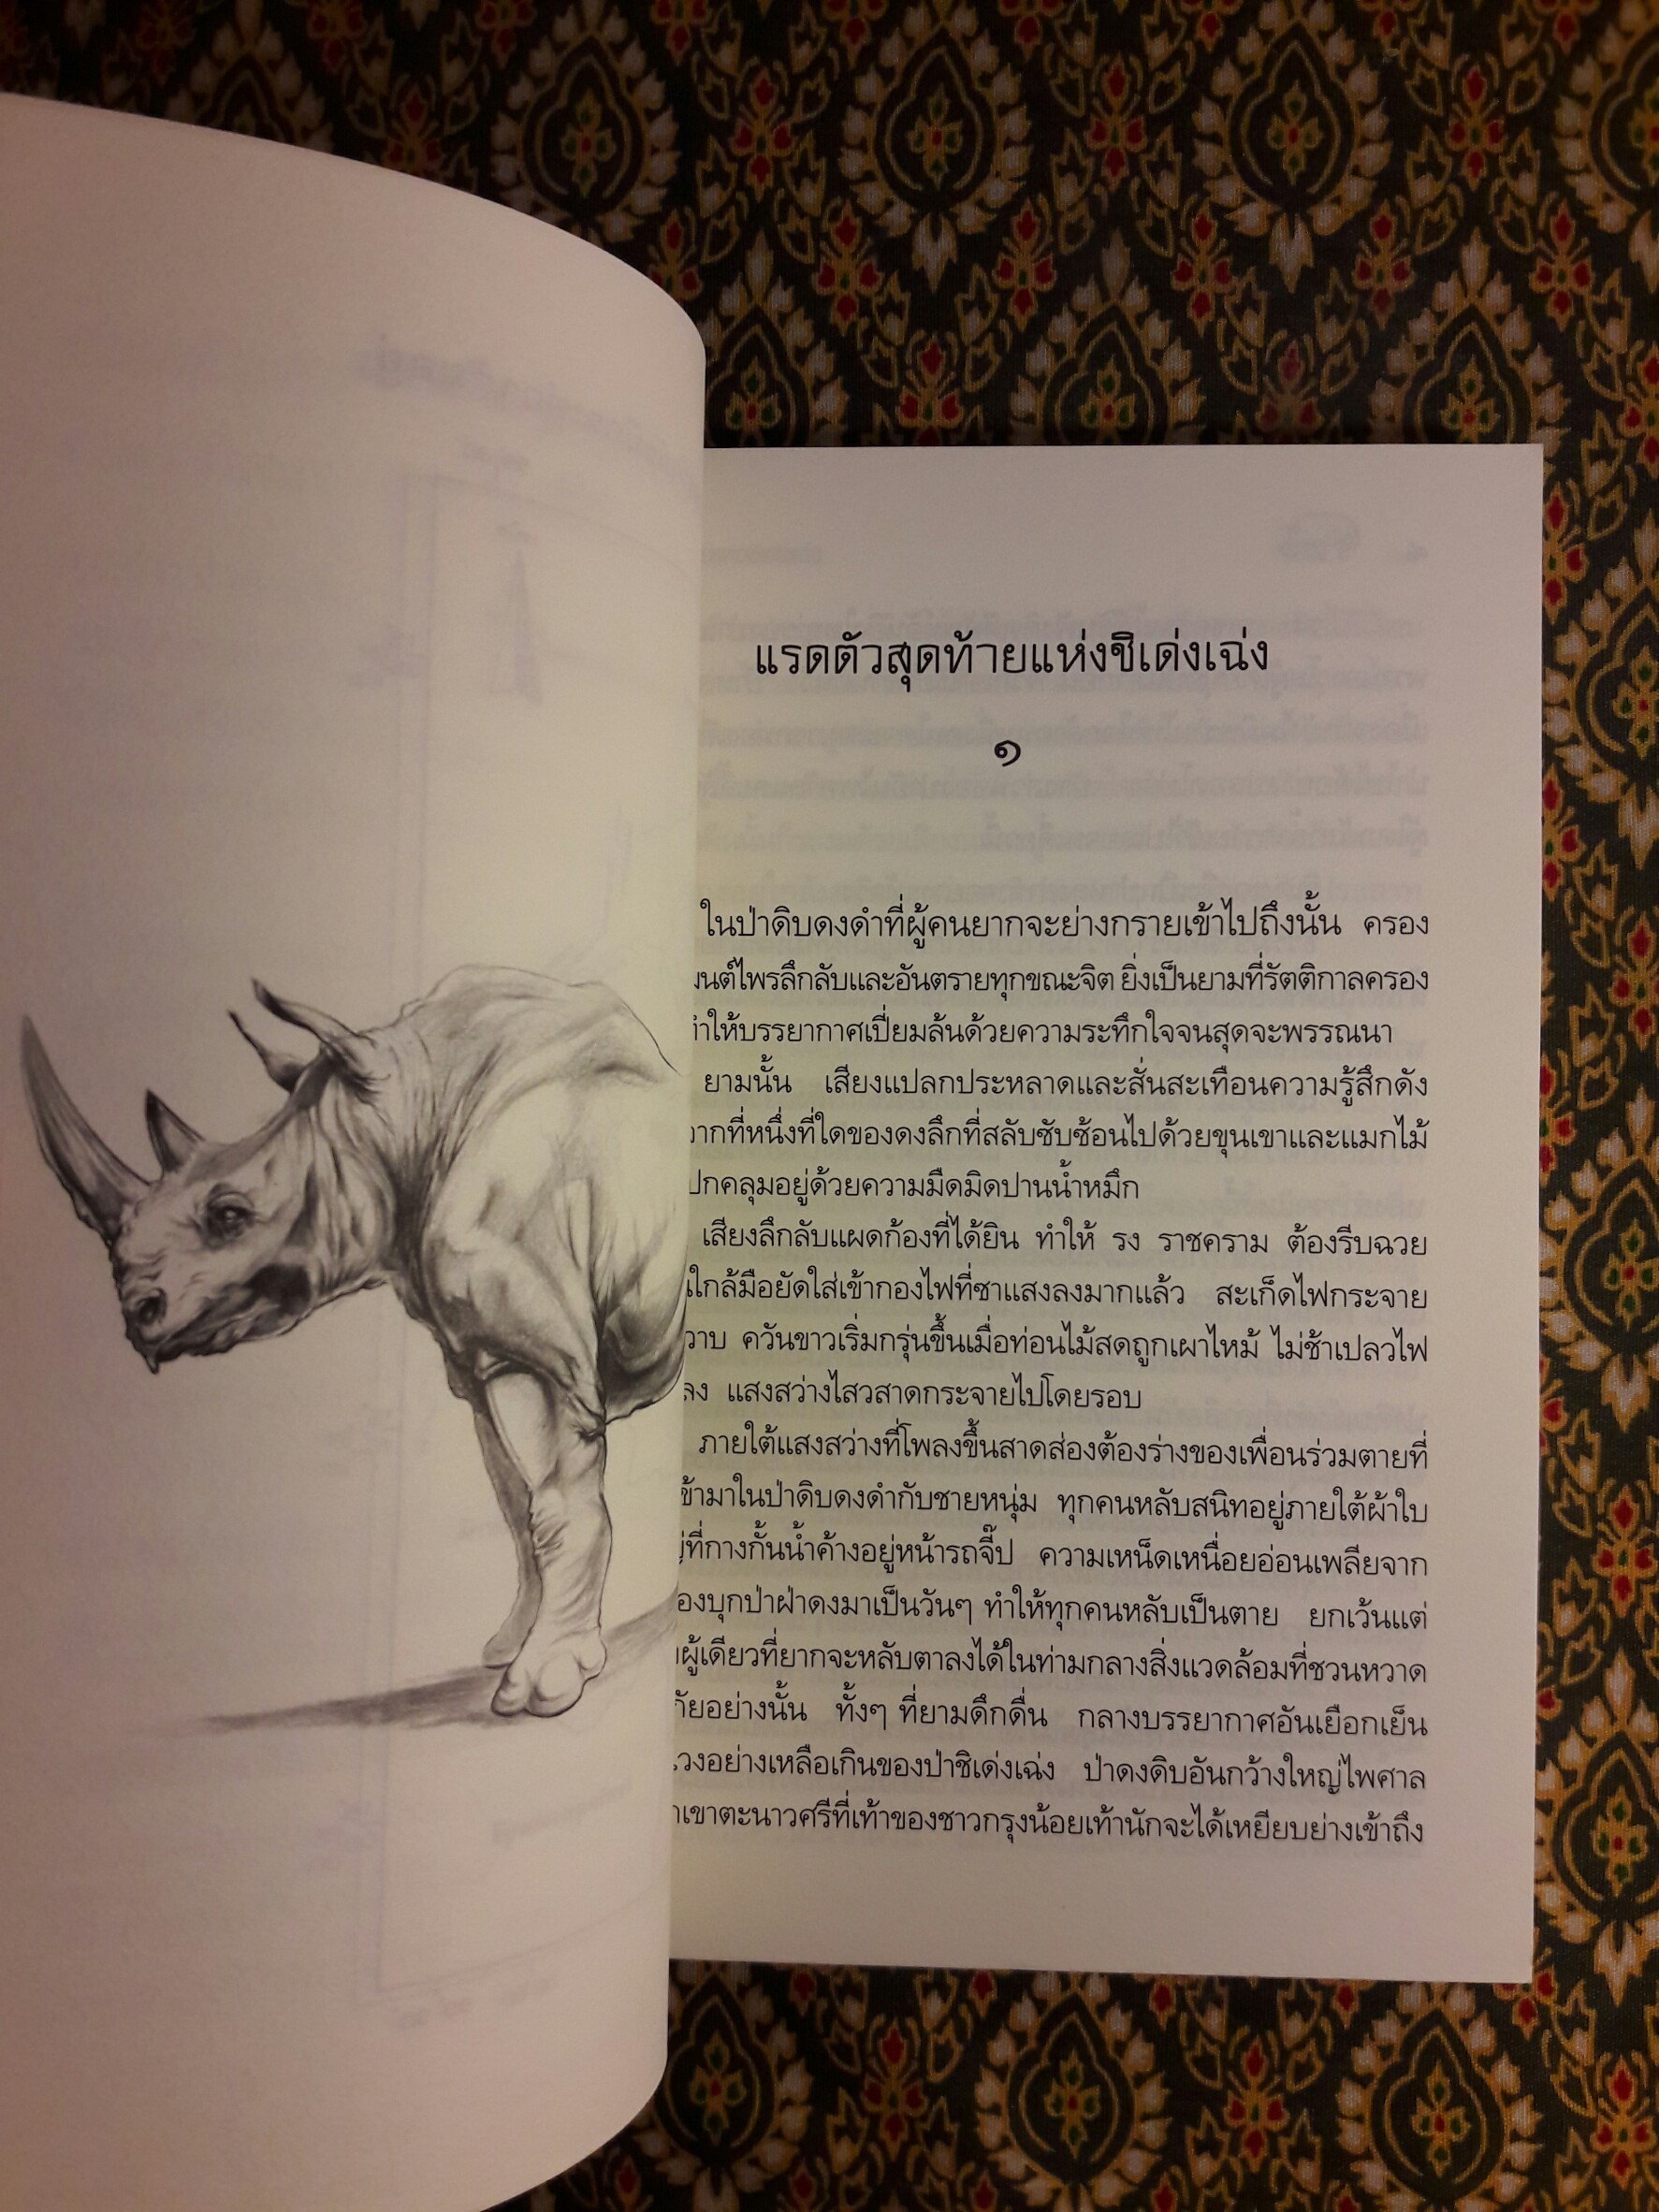 แรดตัวสุดท้ายแห่งชิเด่งเฉ่ง
๑
ในป่าดิบดงดำที่ผู้คนยากจะย่างกรายเข้าไปถึงนั้น ครอง
ลึกลับและอันตรายทุกขณะจิต ยิ่งเป็นยามที่รัตติกาลครอง
ทำให้บรรยากาศเปี่ยมล้นด้วยความระทึกใจจนสุดจะพรรณนา
ยามนั้น เสียงแปลกประหลาดและสั่นสะเทือนความรู้สึกดัง
ที่หนึ่งที่ใดของดงลึกที่สลับซับซ้อนไปด้วยขุนเขาและแมกไม้
ปกคลุมอยู่ด้วยความมืดมิดปานน้ำหมึก
เสียงลึกลับแผดก้องที่ได้ยิน ทำให้ รง ราชคราม ต้องรีบฉวย
ใกล้มือยัดใส่เข้ากองไฟที่ซาแสงลงมากแล้ว สะเก็ดไฟกระจาย
วาบ ควันขาวเริ่มกรุ่นขึ้นเมื่อท่อนไม้สดถูกเผาไหม้ ไม่ช้าเปลวไฟ
ลง แสงสว่างไสวสาดกระจายไปโดยรอบ
ภายใต้แสงสว่างที่โพลงขึ้นสาดส่องต้องร่างของเพื่อนร่วมตายที่
ข้ามาในป่าดิบดงดำกับชายหนุ่ม ทุกคนหลับสนิทอยู่ภายใต้ผ้าใบ
ที่กางกั้นน้ำค้างอยู่หน้ารถจี๊ป ความเหน็ดเหนื่อยอ่อนเพลียจาก
องบุกป่าฝ่าดงมาเป็นวันๆ ทำให้ทุกคนหลับเป็นตาย ยกเว้นแต่
ผู้เดียวที่ยากจะหลับตาลงได้ในท่ามกลางสิ่งแวดล้อมที่ชวนหวาด
ภัยอย่างนั้น ทั้งๆ ที่ยามดึกดื่น กลางบรรยากาศอันเยือกเย็น
วงอย่างเหลือเกินของป่าชิเด่งเฉ่ง ป่าดงดิบอันกว้างใหญ่ไพศาล
เขาตะนาวศรีที่เท้าของชาวกรุงน้อยเท้านักจะได้เหยียบย่างเข้าถึง